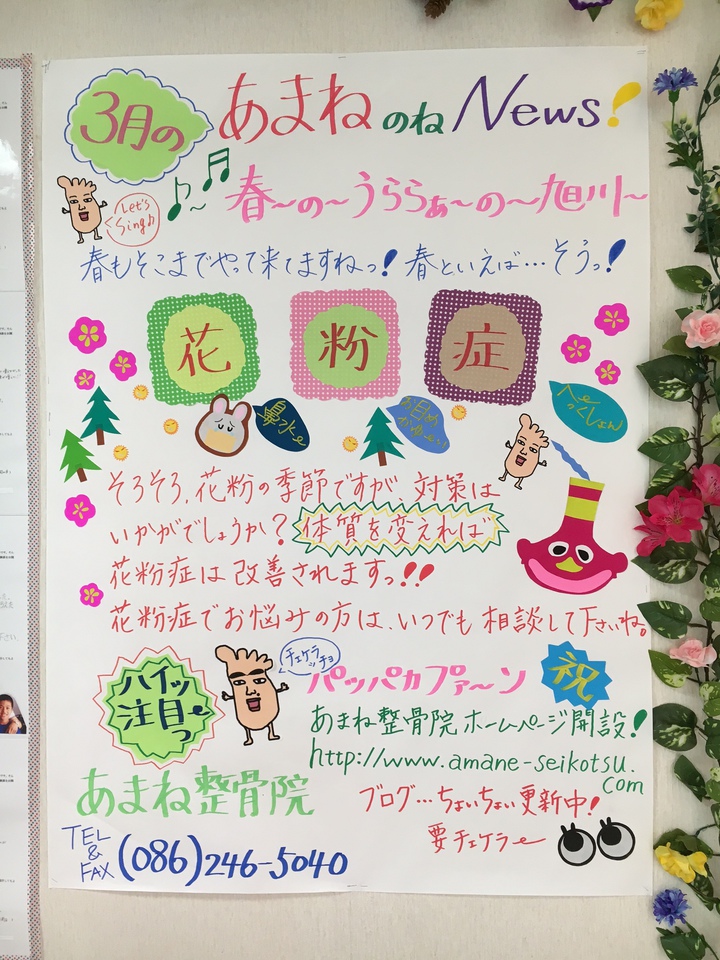 3月の あまねのね News!
Let's
Sing♪
春〜の〜うららぁ〜の〜旭川〜
春もそこまでやって来てますねっ! 春といえば…そうっ!
花 粉 症
鼻水〜
お目め
かゆ〜い
へ〜
っくしょん
そろそろ、花粉の季節ですが、対策は
いかがでしょうか? 体質を変えれば
花粉症は改善されますっ!!
花粉症でお悩みの方は、いつでも相談して下さいね。
ハイッ
注目〜っ
チェケラ
ッチョ
パッパカプァ〜ン 祝
あまね整骨院ホームページ開設!
http://www.amane-seikotsu.
com
あまね整骨院
ブログ…ちょいちょい更新中!
要チェケラ〜
TEL
&
FAX (086)246-5040